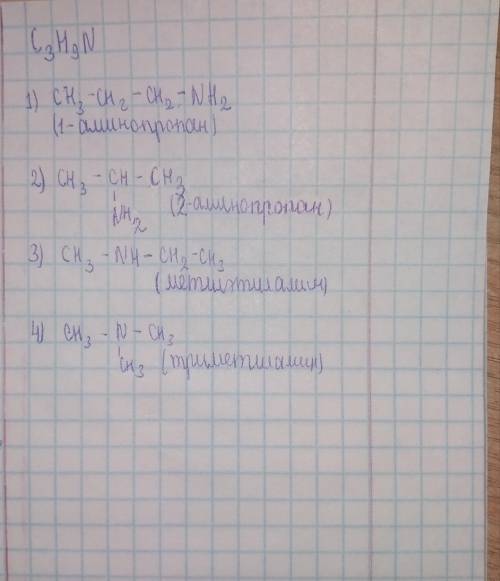 C₃H₉N
1) CH₃-CH₂-CH₂-NH₂
(1-аминопропан)
2) CH₃-CH-CH₃
NH₂ (2-аминопропан)
3) CH₃-NH-CH₂-CH₃
(метилэтиламин)
4) CH₃-N-CH₃
CH₃ (триметиламин)